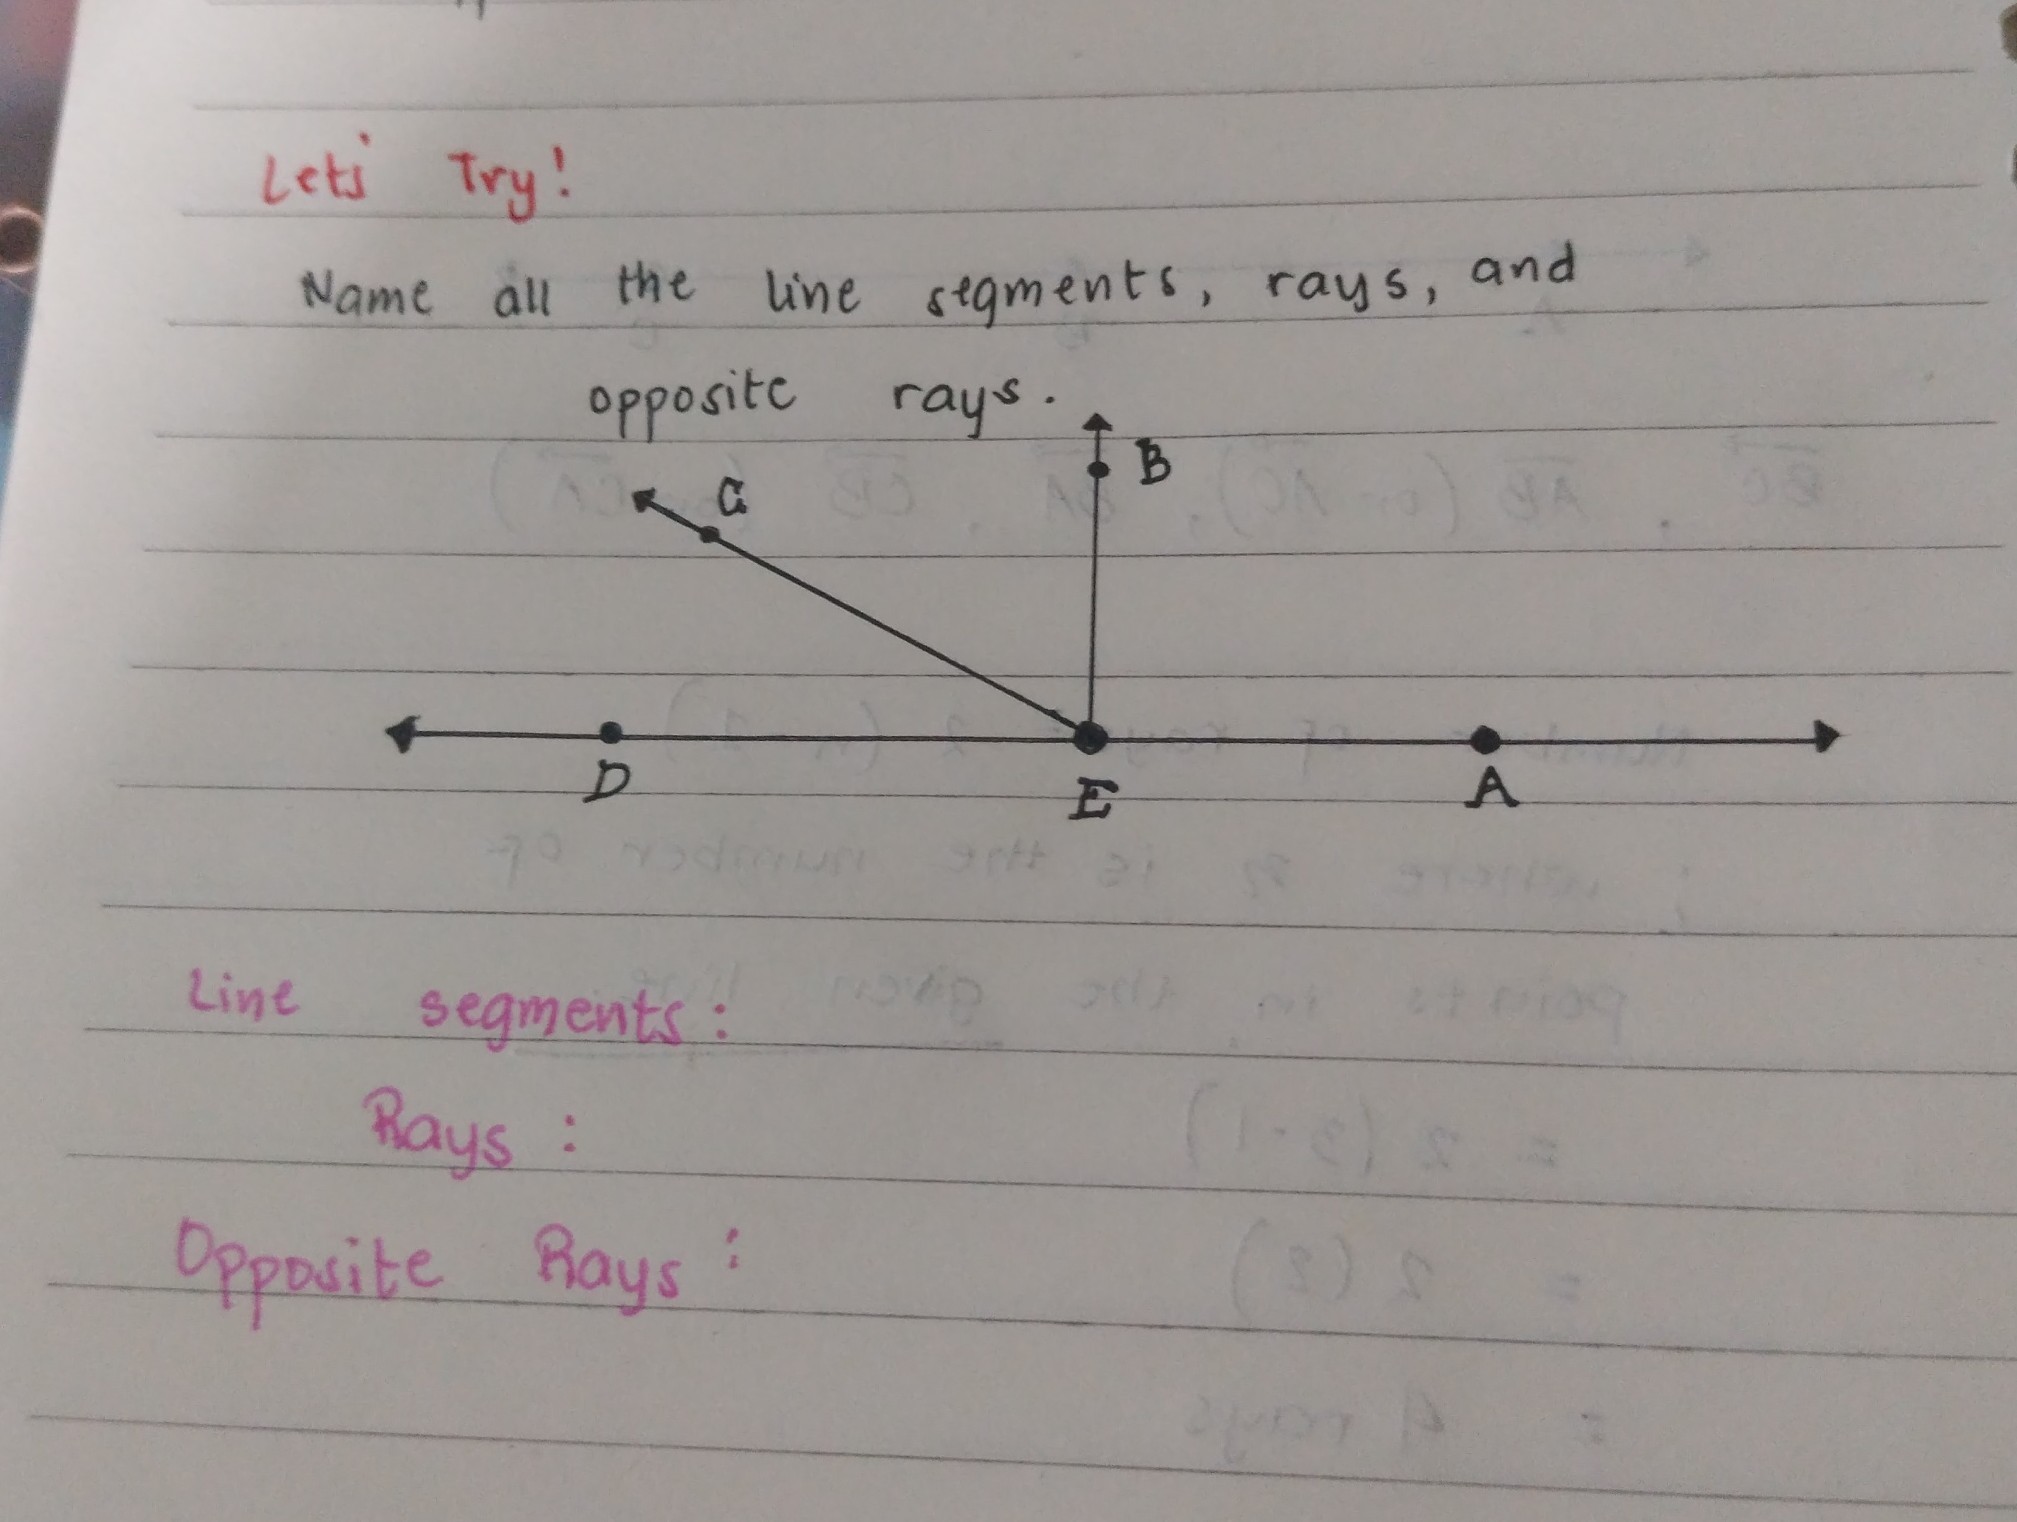 Lets' Try!
Name all the line segments, rays, and
opposite rays.
B
C
D
E
A
Line segments:
Rays :
Opposite Rays :